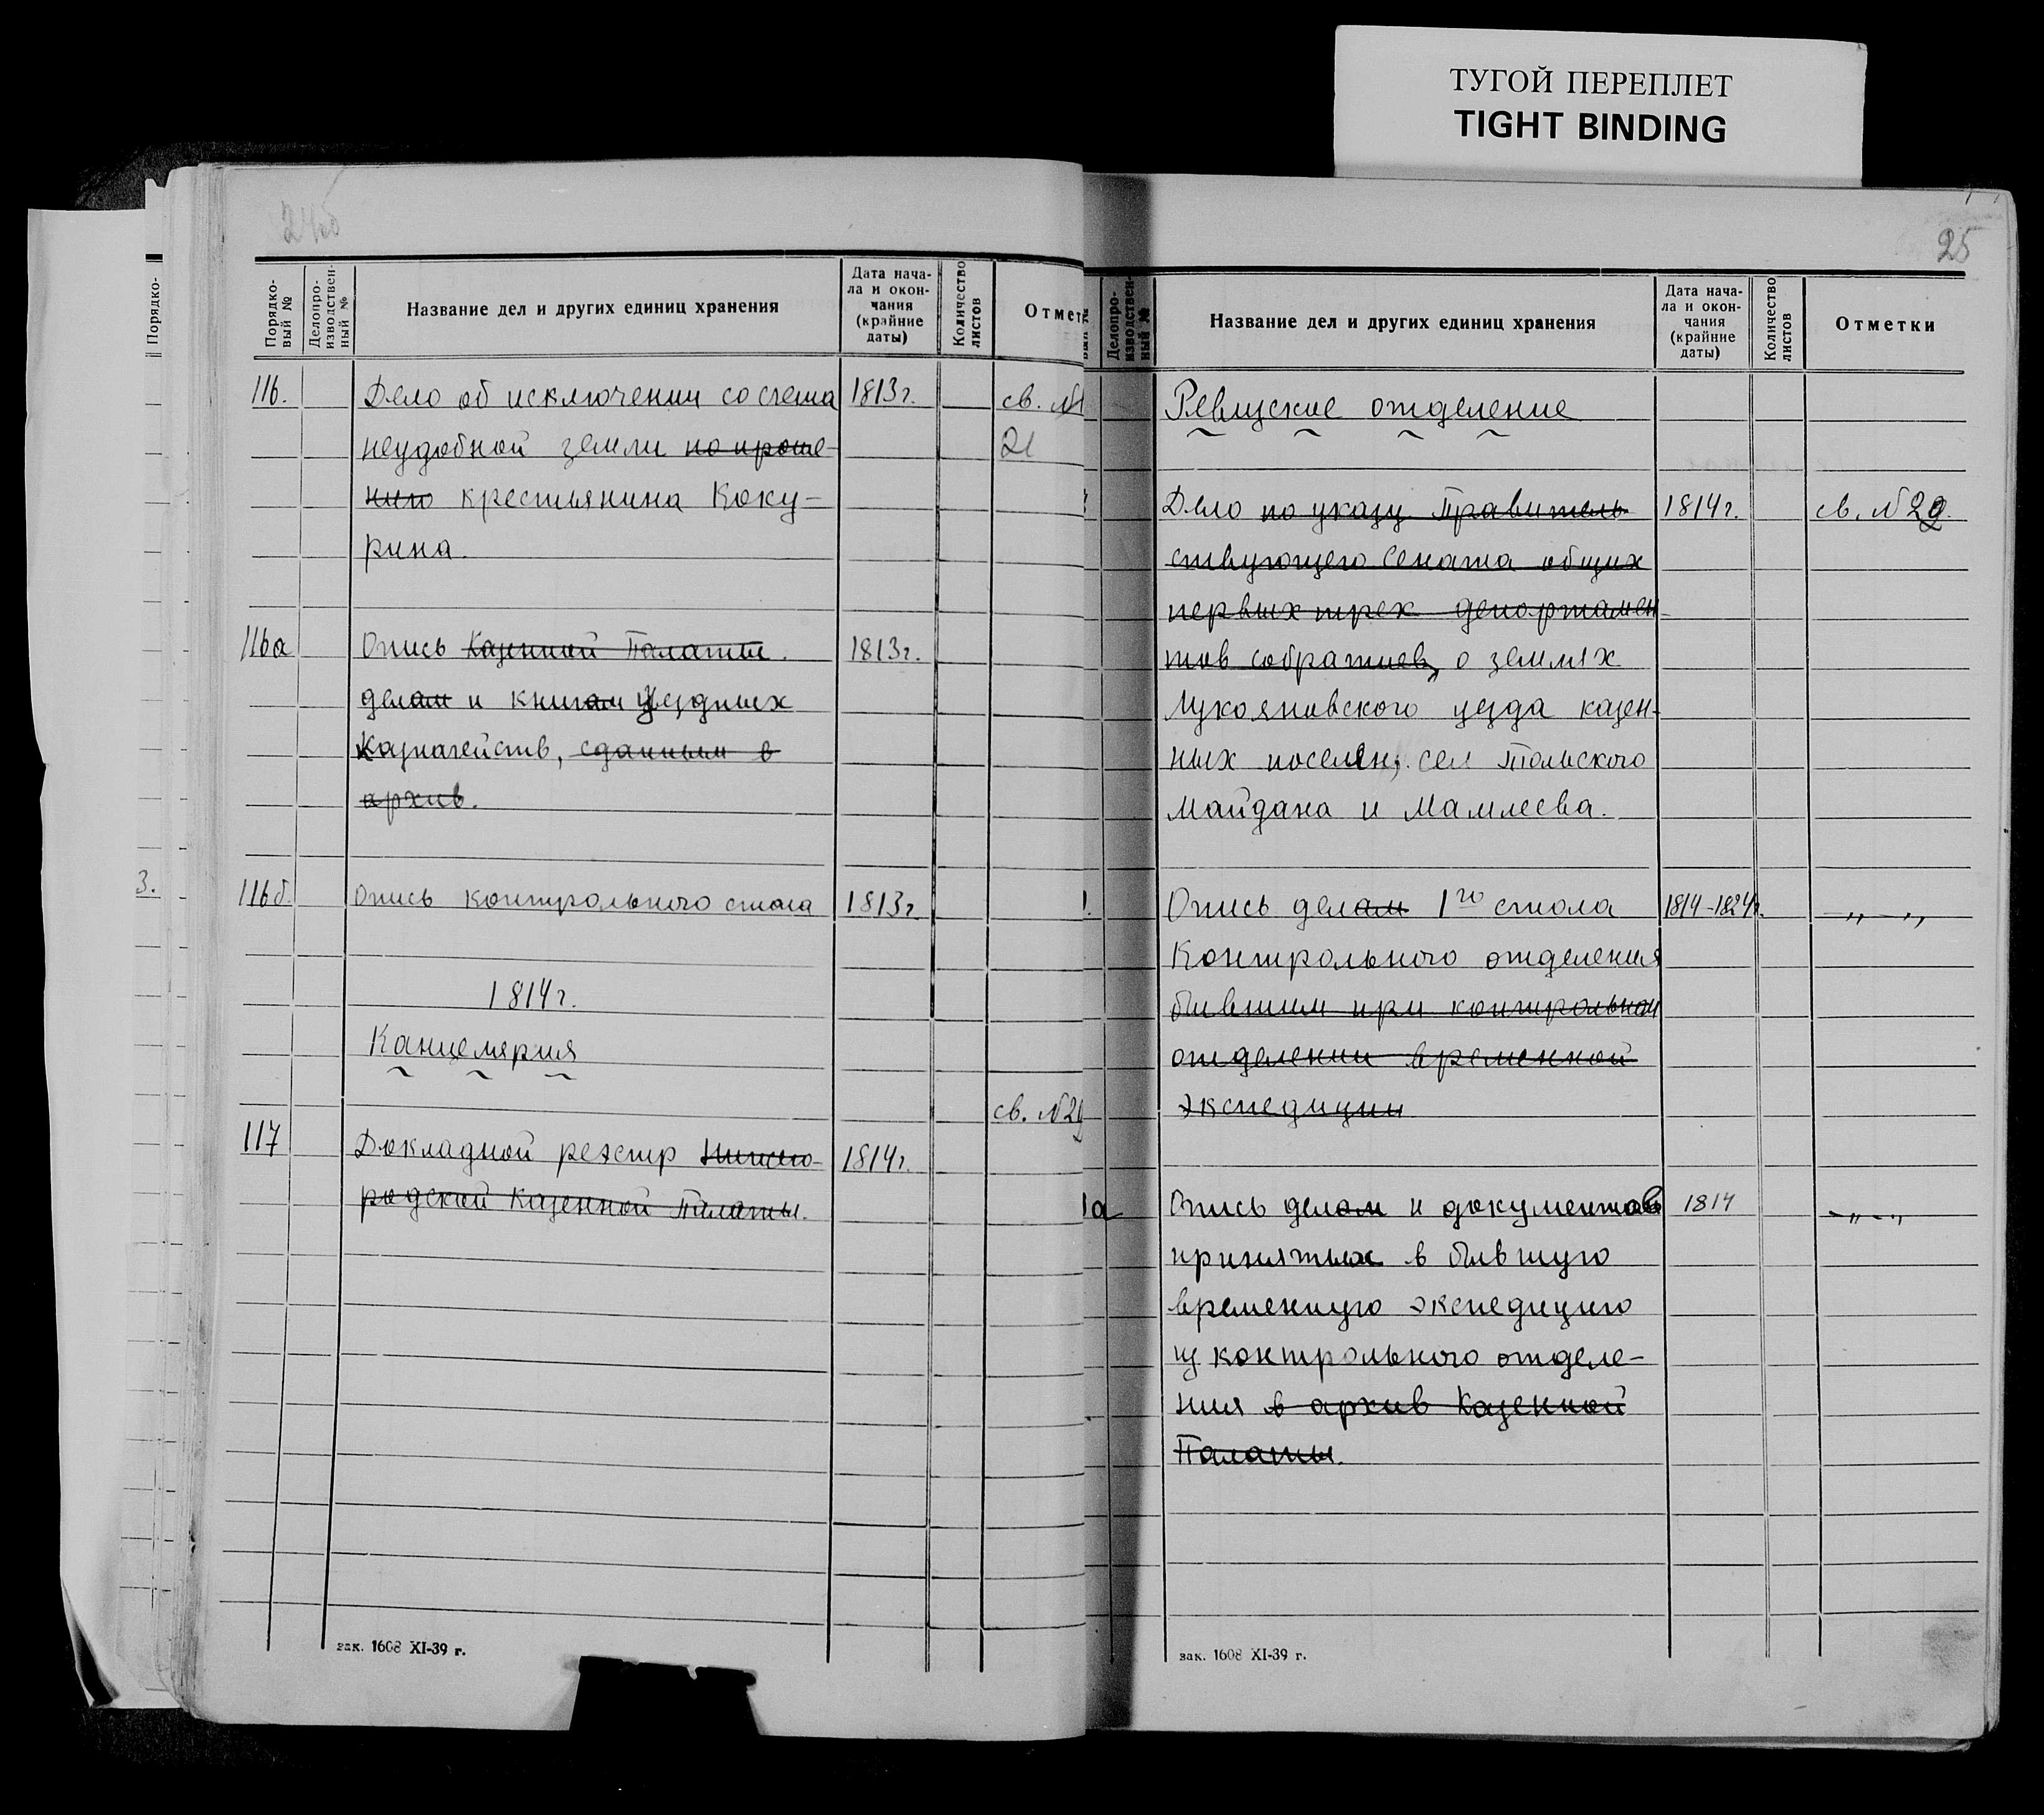 ТУГОЙ ПЕРЕПЛЕТ
TIGHT BINDING
24об
Порядко-
Порядко-
вый №
Делопро-
изводствен-
ный №
Название дел и других единиц хранения
Дата нача-
ла и окон-
чания
(крайние
даты)
Количество
листов
Отмет
116.
Дело об исключении со счета
1813г.
св. №
неудобной земли по проше-
21
нию крестьянина Коку-
рина.
116а
Опись Казенной Палаты.
1813г.
делам и книгам Уездных
Казначейств, сданным в
архив.
3.
116б.
Опись контрольного стола
1813г
1814г.
Канцелярия
св. №2
117
Докладной реэстр Нижего-
1814г.
родской Казенной Палаты.
зак. 1608 XI-39 г.
25
вый №
Делопро-
изводствен-
ный №
Название дел и других единиц хранения
Дата нача-
ла и окон-
чания
(крайние
даты)
Количество
листов
Отметки
отделение
Дело по указу Правитель-
1814г.
св. №22.
ствующего Сената общих
первых трех департамен-
тов собраниев, о землях
Лукояновского уезда казен-
ных поселян; сел Тольского
Майдана и Мамлеева.
Опись делам 1го стола
1814-1824г.
-„-„
Контрольного отделения
бывшим при контрольном
отделении временной
экспедиции
1а
Опись делам и документов
1814
-„-„
принятых в бывшую
временную экспедицию
из контрольного отделе-
ния в архив Казенной
Палаты.
зак. 1608 XI-39 г.